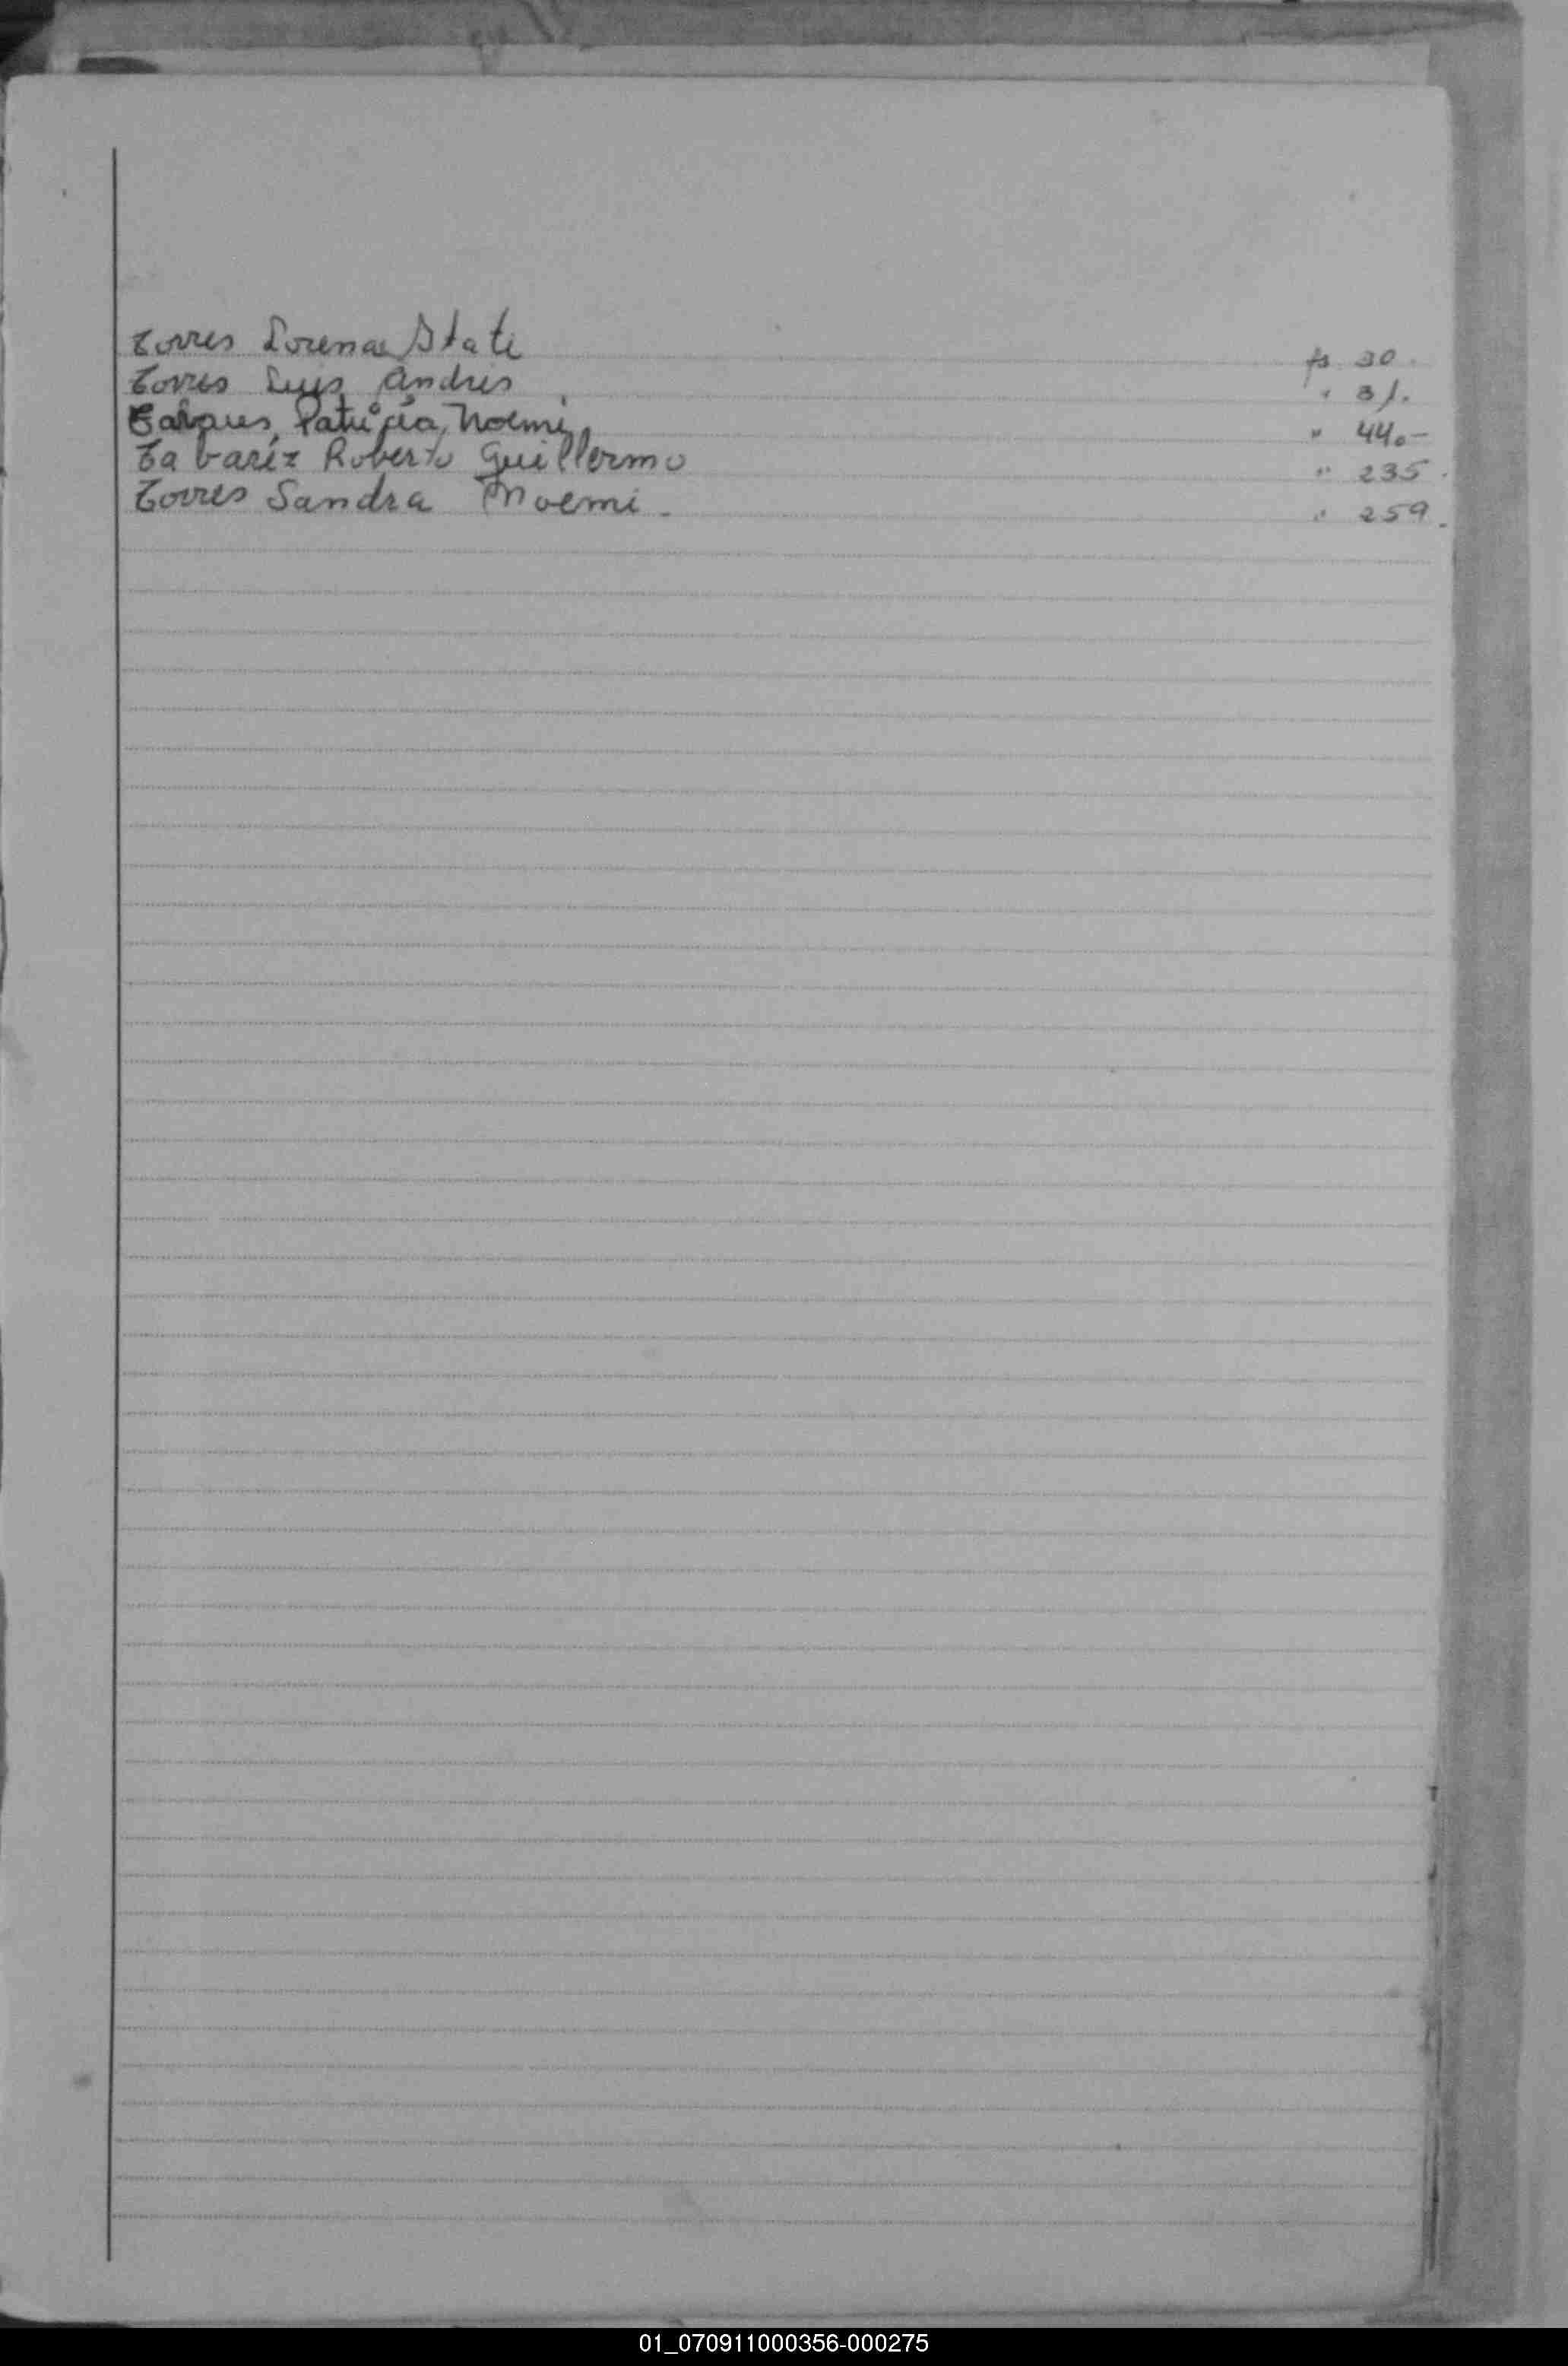 Torres Lorena State fs 30.
Torres Luis Andres " 31.
Patricia Noemi " 440-
Tabarez Roberto Guillermo " 235.
Torres Sandra Noemi - " 259.
01_070911000356-000275